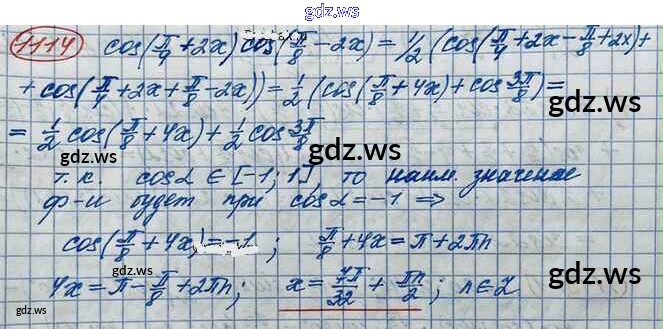 gdz.ws
1114 cos(π/4 + 2x) cos(π/8 - 2x) = 1/2 (cos(π/4 + 2x - π/8 + 2x) +
+ cos(π/4 + 2x + π/8 - 2x)) = 1/2 (cos(π/8 + 4x) + cos 3π/8) =
gdz.ws
= 1/2 cos(π/8 + 4x) + 1/2 cos 3π/8
gdz.ws
т.к. cosα ∈ [-1; 1], то наим. значение
ф-и будет при cosα = -1 ⇒
gdz.ws
cos(π/8 + 4x) = -1 ; π/8 + 4x = π + 2πn
4x = π - π/8 + 2πn ; x = 7π/32 + πn/2 ; n ∈ Z
gdz.ws
gdz.ws